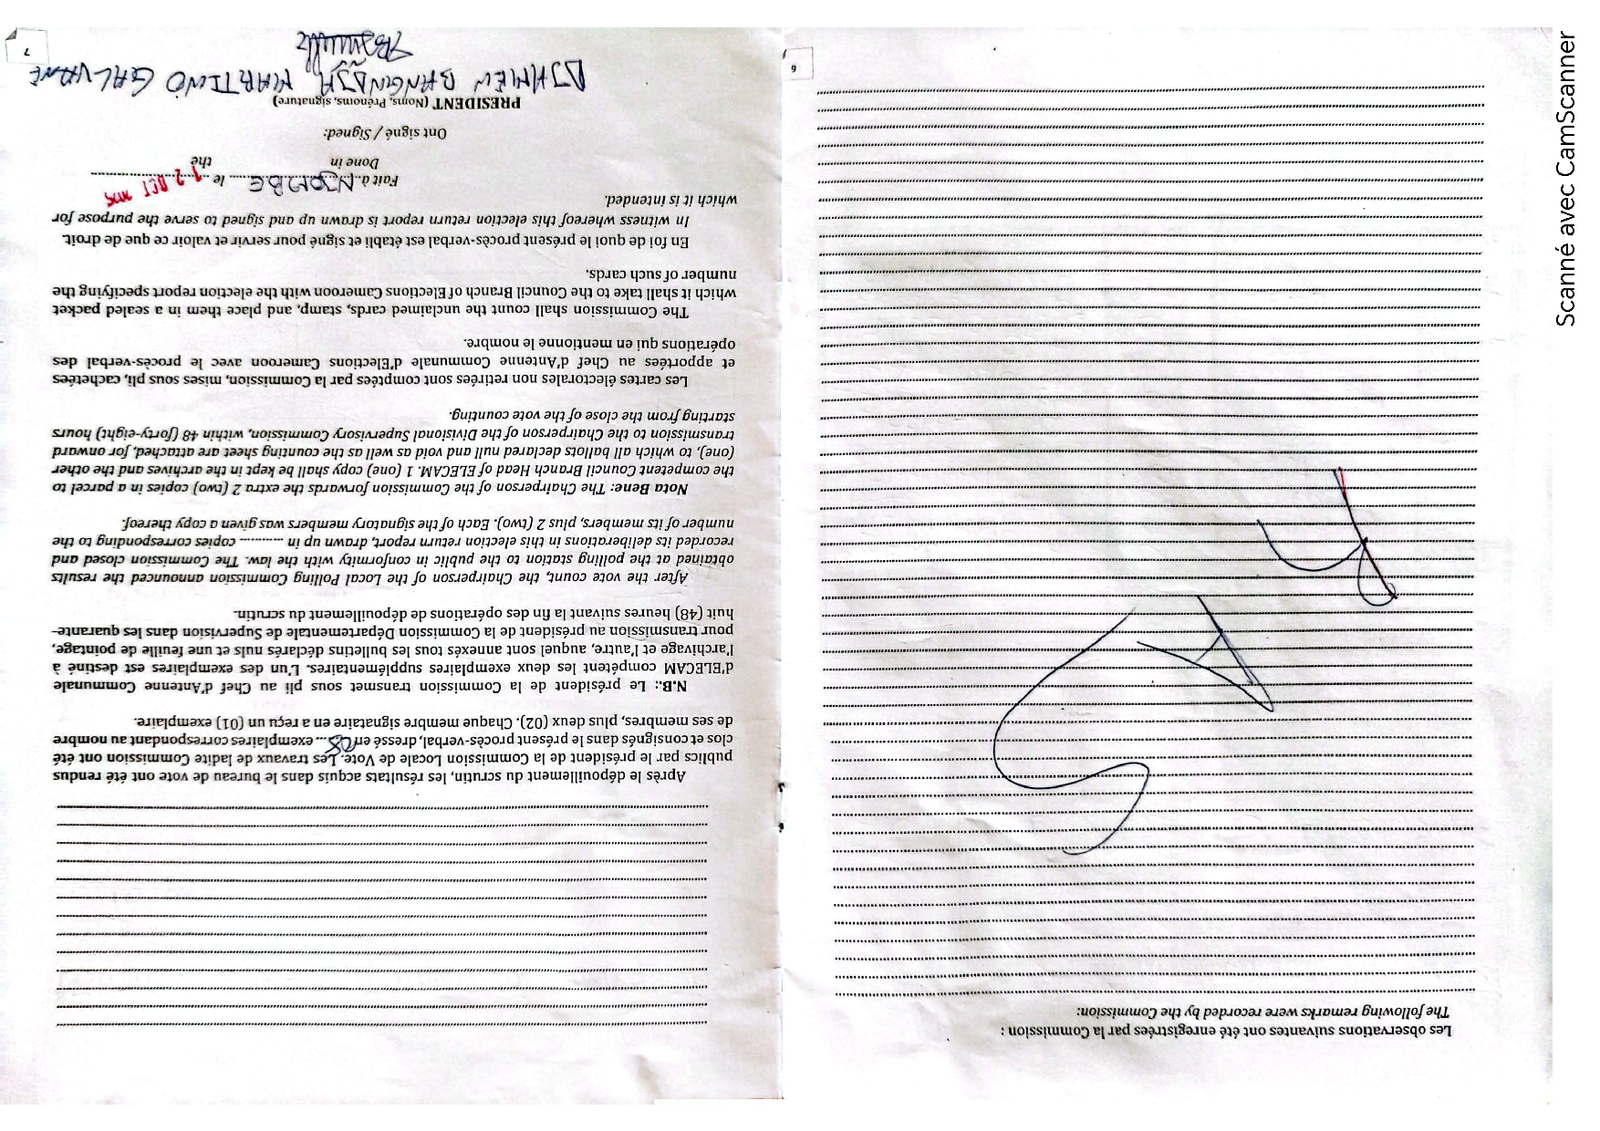 Les observations suivantes ont été enregistrées par la Commission :
The following remarks were recorded by the Commission:
6
Après le dépouillement du scrutin, les résultats acquis dans le bureau de vote ont été rendus
publics par le président de la Commission Locale de Vote. Les travaux de ladite Commission ont été
clos et consignés dans le présent procès-verbal, dressé en 08 exemplaires correspondant au nombre
de ses membres, plus deux (02). Chaque membre signataire en a reçu un (01) exemplaire.
N.B.: Le président de la Commission transmet sous pli au Chef d'Antenne Communale
d'ELECAM compétent les deux exemplaires supplémentaires. L'un des exemplaires est destiné à
l'archivage et l'autre, auquel sont annexés tous les bulletins déclarés nuls et une feuille de pointage,
pour transmission au président de la Commission Départementale de Supervision dans les quarante-
huit (48) heures suivant la fin des opérations de dépouillement du scrutin.
After the vote count, the Chairperson of the Local Polling Commission announced the results
obtained at the polling station to the public in conformity with the law. The Commission closed and
recorded its deliberations in this election return report, drawn up in ........... copies corresponding to the
number of its members, plus 2 (two). Each of the signatory members was given a copy thereof.
Nota Bene: The Chairperson of the Commission forwards the extra 2 (two) copies in a parcel to
the competent Council Branch Head of ELECAM. 1 (one) copy shall be kept in the archives and the other
(one), to which all ballots declared null and void as well as the counting sheet are attached, for onward
transmission to the Chairperson of the Divisional Supervisory Commission, within 48 (forty-eight) hours
starting from the close of the vote counting.
Les cartes électorales non retirées sont comptées par la Commission, mises sous pli, cachetées
et apportées au Chef d'Antenne Communale d'Elections Cameroon avec le procès-verbal des
opérations qui en mentionne le nombre.
The Commission shall count the unclaimed cards, stamp, and place them in a sealed packet
which it shall take to the Council Branch of Elections Cameroon with the election report specifying the
number of such cards.
En foi de quoi le présent procès-verbal est établi et signé pour servir et valoir ce que de droit.
In witness whereof this election return report is drawn up and signed to serve the purpose for
which it is intended.
Fait à NJOMBE le 12 OCT
Done in the
Ont signé / Signed:
PRESIDENT (Noms, Prénoms, signature)
MARTINO GALVANE
7
Scanné avec CamScanner